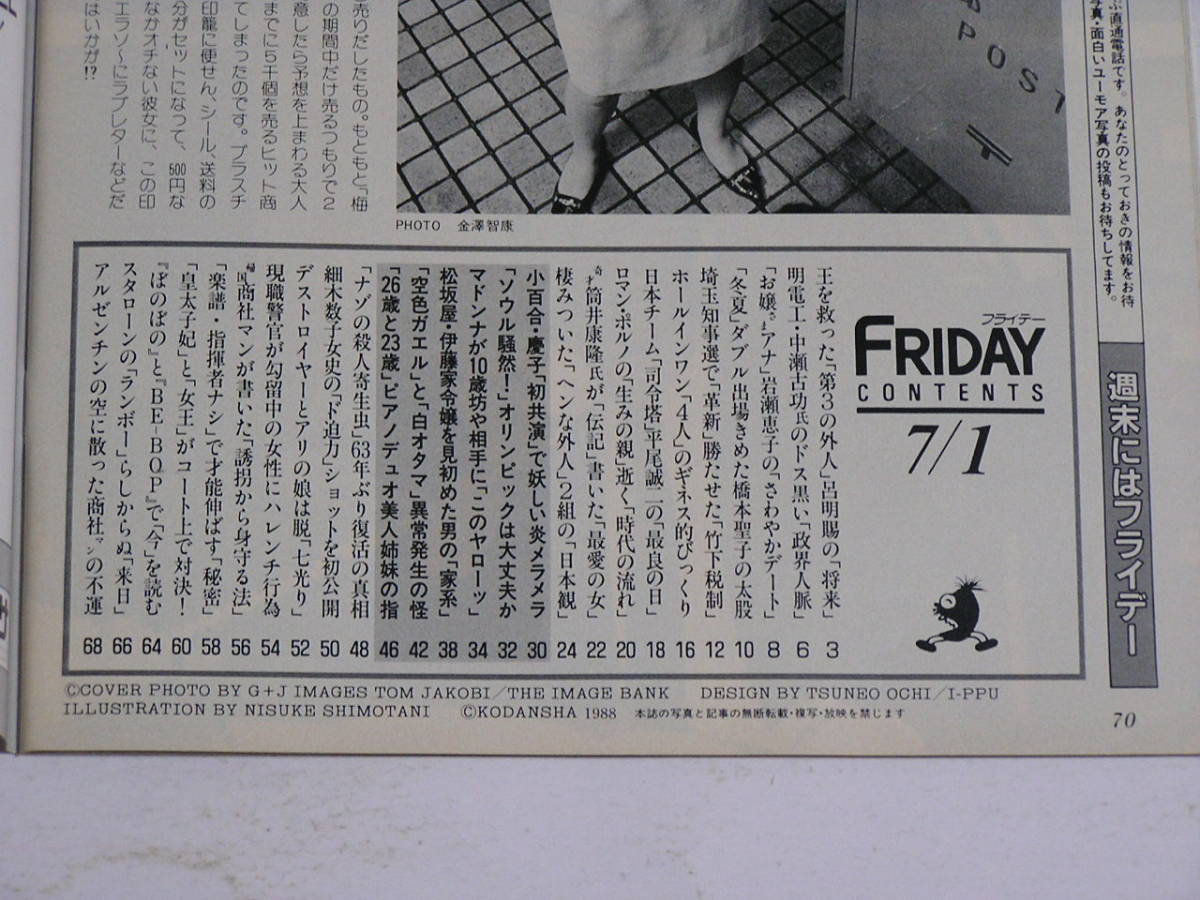 売りだしたもの。もともと「梅
の期間中だけ売るつもりで2
意したら予想を上まわる大人
までに5千個を売るヒット商
てしまったのです。プラスチ
印籠に便せん、シール、送料の
分がセットになって、500円な
なかオチない彼女に、この印
エラソ〜にラブレターなどだ
はいかが!?
POST
〒
PHOTO 金澤智康
ぶ直通電話です。あなたのとっておきの情報をお待
写真・面白いユーモア写真の投稿もお待ちしてます。
週末にはフライデー
フライデー
FRIDAY
CONTENTS
7/1
王を救った「第3の外人」呂明賜の「将来」 3
明電工・中瀬古功氏のドス黒い「政界人脈」 6
「お嬢さまアナ」岩瀬恵子の「さわやかデート」 8
「冬夏」ダブル出場きめた橋本聖子の太股 10
埼玉知事選で「革新」勝たせた「竹下税制」 12
ホールインワン「4人」のギネス的びっくり 16
日本チーム「司令塔」平尾誠二の「最良の日」 18
ロマン・ポルノの「生みの親」逝く「時代の流れ」 20
奇才筒井康隆氏が「伝記」書いた「最愛の女」 22
棲みついた「ヘンな外人」2組の「日本観」 24
小百合・慶子「初共演」で妖しい炎メラメラ 30
「ソウル騒然!」オリンピックは大丈夫か 32
マドンナが10歳坊や相手に「このヤローッ」 34
松坂屋・伊藤家令嬢を見初めた男の「家系」 38
「空色ガエル」と「白オタマ」異常発生の怪 42
「26歳と23歳」ピアノデュオ美人姉妹の指 46
「ナゾの殺人寄生虫」63年ぶり復活の真相 48
細木数子女史の「ド迫力」ショットを初公開 50
デストロイヤーとアリの娘は脱「七光り」 52
現職警官が勾留中の女性にハレンチ行為 54
帰国商社マンが書いた「誘拐から身守る法」 56
「楽譜・指揮者ナシ」で才能伸ばす「秘密」 58
「皇太子妃」と「女王」がコート上で対決! 60
『ぼのぼの』と『BE-BOP』で「今」を読む 64
スタローンの「ランボー」らしからぬ「来日」 66
アルゼンチンの空に散った商社マンの不運 68
©COVER PHOTO BY G+J IMAGES TOM JAKOBI/THE IMAGE BANK DESIGN BY TSUNEO OCHI/I-PPU
ILLUSTRATION BY NISUKE SHIMOTANI ©KODANSHA 1988 本誌の写真と記事の無断転載・複写・放映を禁じます
70